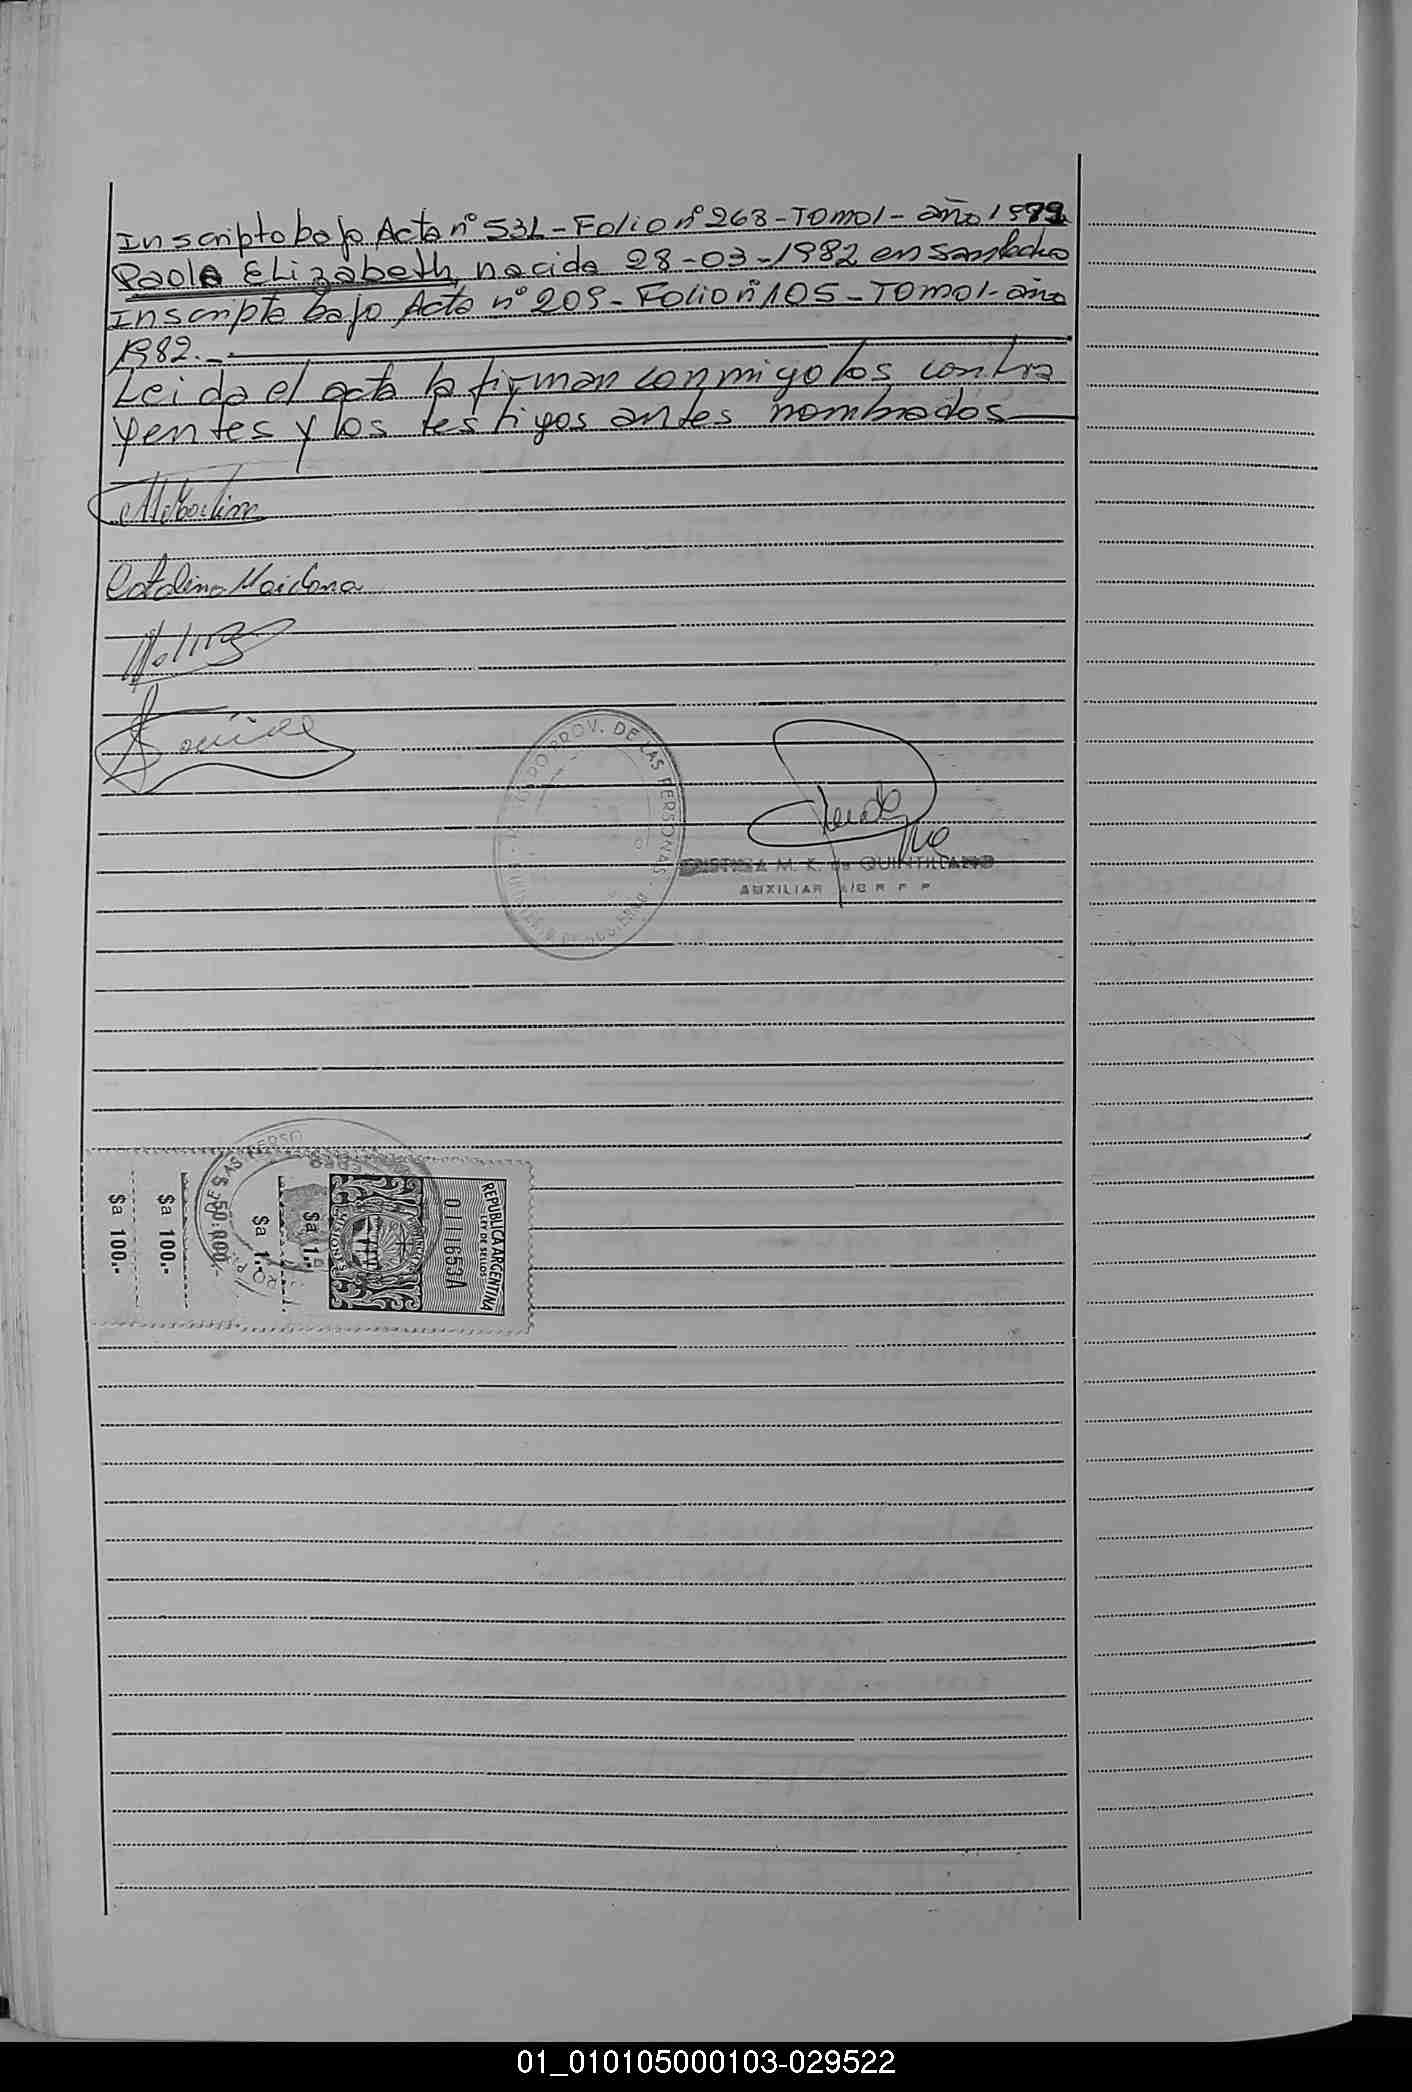 Inscripto bajo Acta nº 531-Folio nº 268-Tomo 1-año 1979
Paola Elizabeth, nacida 28-03-1982 en San Pedro
Inscripta bajo Acta nº 209-Folio nº 105-Tomo 1-año
1982.-
Leida el acta la firman conmigo los contra
yentes y los testigos antes nombrados
Catalina Maidana
PROV. DE LAS PERSONAS
M. K. de QUINTILLANO
AUXILIAR
REPUBLICA ARGENTINA
LEY DE SELLOS
0111653A
MISIONES
$a 1.-
$a 1.-
50.000.-
$a 100.-
$a 100.-
01_010105000103-029522